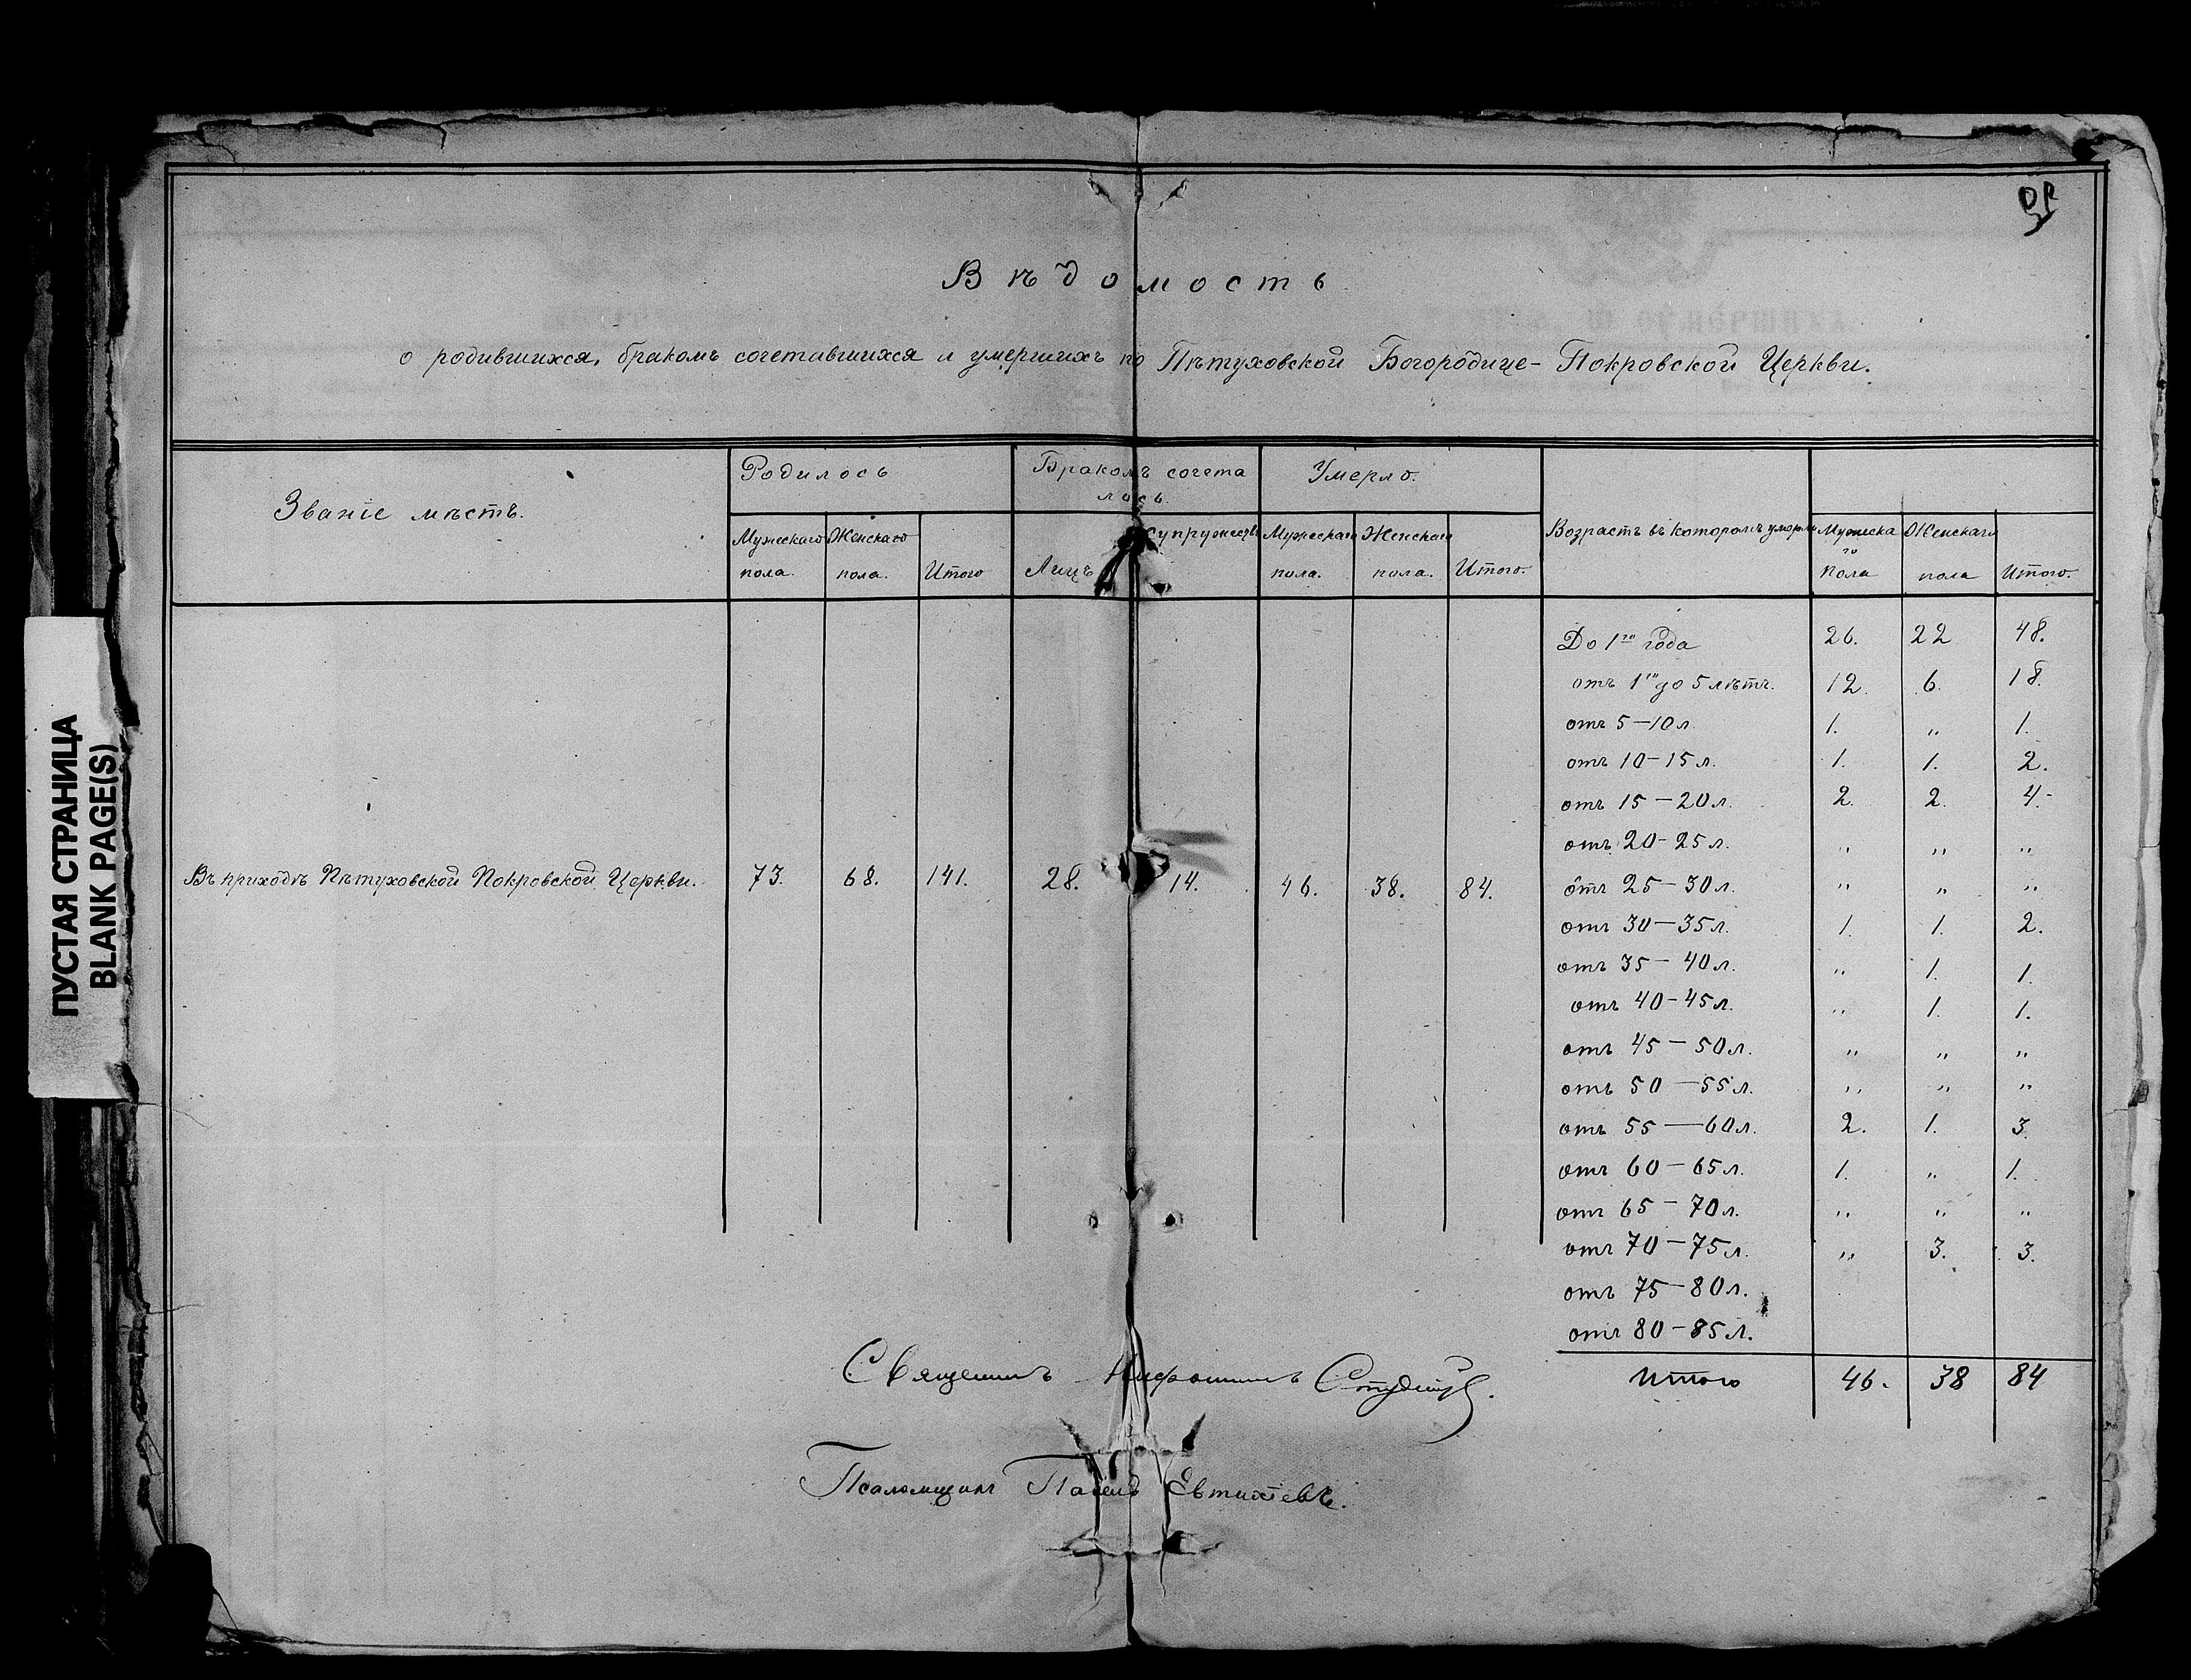 Вѣдомость
о родившихся, бракомъ сочетавшихся и умершихъ по Пѣтуховской Богородице-Покровской Церкви.
Званіе мѣстъ.
Родилось
Бракомъ сочета
лось.
Умерло.
Мужескаго пола.
Женскаго пола.
Итого
Лицъ
Супружествъ
Мужескаго пола.
Женскаго пола.
Итого.
Возрастъ въ которомъ умерли
Мужеска
го
пола
Женскаго пола
Итого.
Въ приходѣ Пѣтуховской Покровской Церкви. 73. 68. 141. 28. 14. 46. 38. 84.
До 1го года 26. 22 48.
отъ 1го до 5 лѣтъ. 12. 6. 18.
отъ 5—10 л. 1. „ 1.
отъ 10—15 л. 1. 1. 2.
отъ 15—20 л. 2. 2. 4.
отъ 20-25 л. „ „ „
отъ 25—30 л. „ „ „
отъ 30—35 л. 1. 1. 2.
отъ 35—40 л. „ 1. 1.
отъ 40-45 л. „ 1. 1.
отъ 45—50 л. „ „ „
отъ 50—55 л. „ „ „
отъ 55—60 л. 2. 1. 3.
отъ 60—65 л. 1. „ 1.
отъ 65—70 л. „ „ „
отъ 70—75 л. „ 3. 3.
отъ 75—80 л.
отъ 80—85 л.
Итого 46. 38 84
Священникъ
Псаломщикъ Павелъ Евтихіевъ.
ПУСТАЯ СТРАНИЦА
BLANK PAGE(S)